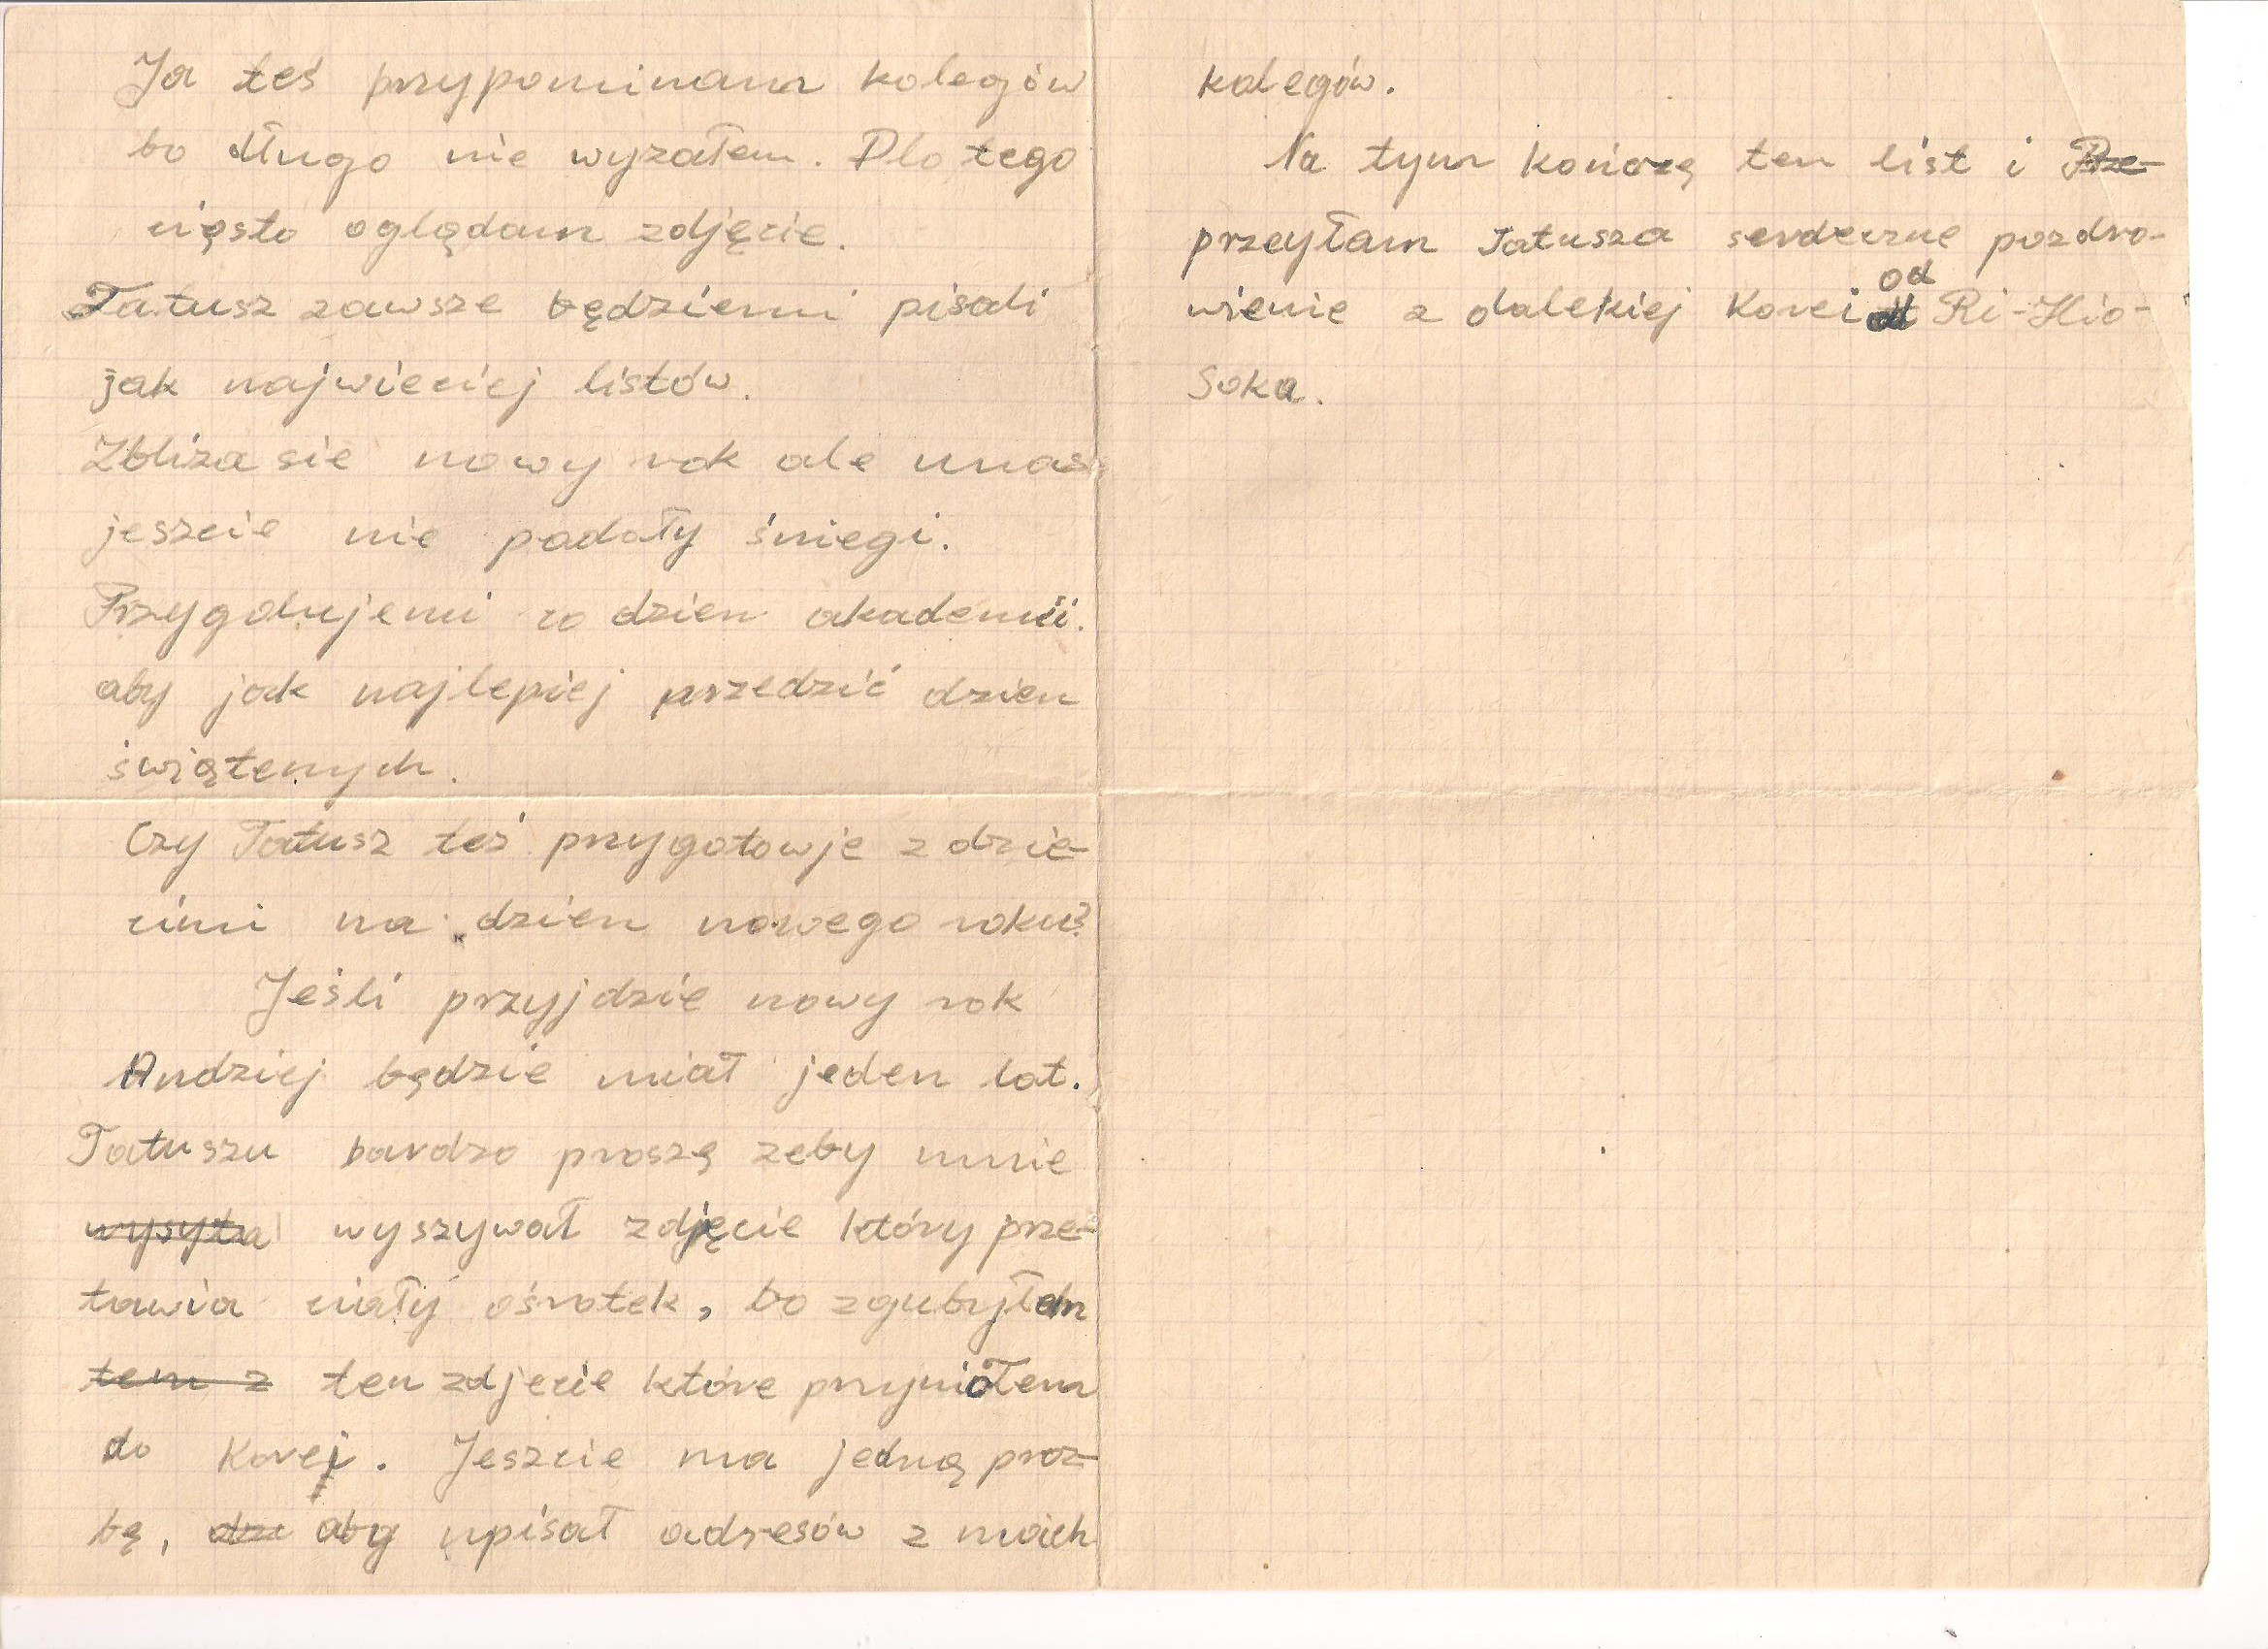 Ja teś przypominam kolegów
bo długo nie wyzałem. Dlo tego
cięsto oglądam zdjęcie.
Tatusz zawsze będziemi pisali
jak najwieciej listów.
Zbliza sie nowy rok ale unas
jeszcie nie padały śniegi.
Przygotujemi co dzien akademii.
aby jak najlepiej przedzić dzien
świątenych.
Czy Tatusz też przygotowje z dzie-
cimi na dzien nowego roku?
Jeśli przyjdzie nowy rok
Andziej będzie miał jeden lat.
Tatuszu bardzo proszą zeby mnie
wysyła wyszywał zdjęcie który prze-
tawia ciały ośrotek, bo zgubyłem
tem z ten zdjecie które przyniołem
do Korej. Jeszcie ma jedną proz-
bę, aby upisał adresów z moich
kolegów.
Na tym kończą ten list i Prze-
przeyłam Tatusza serdeczne pozdro-
wienie z dalekiej Korei od Ri-Hio-
Soka.